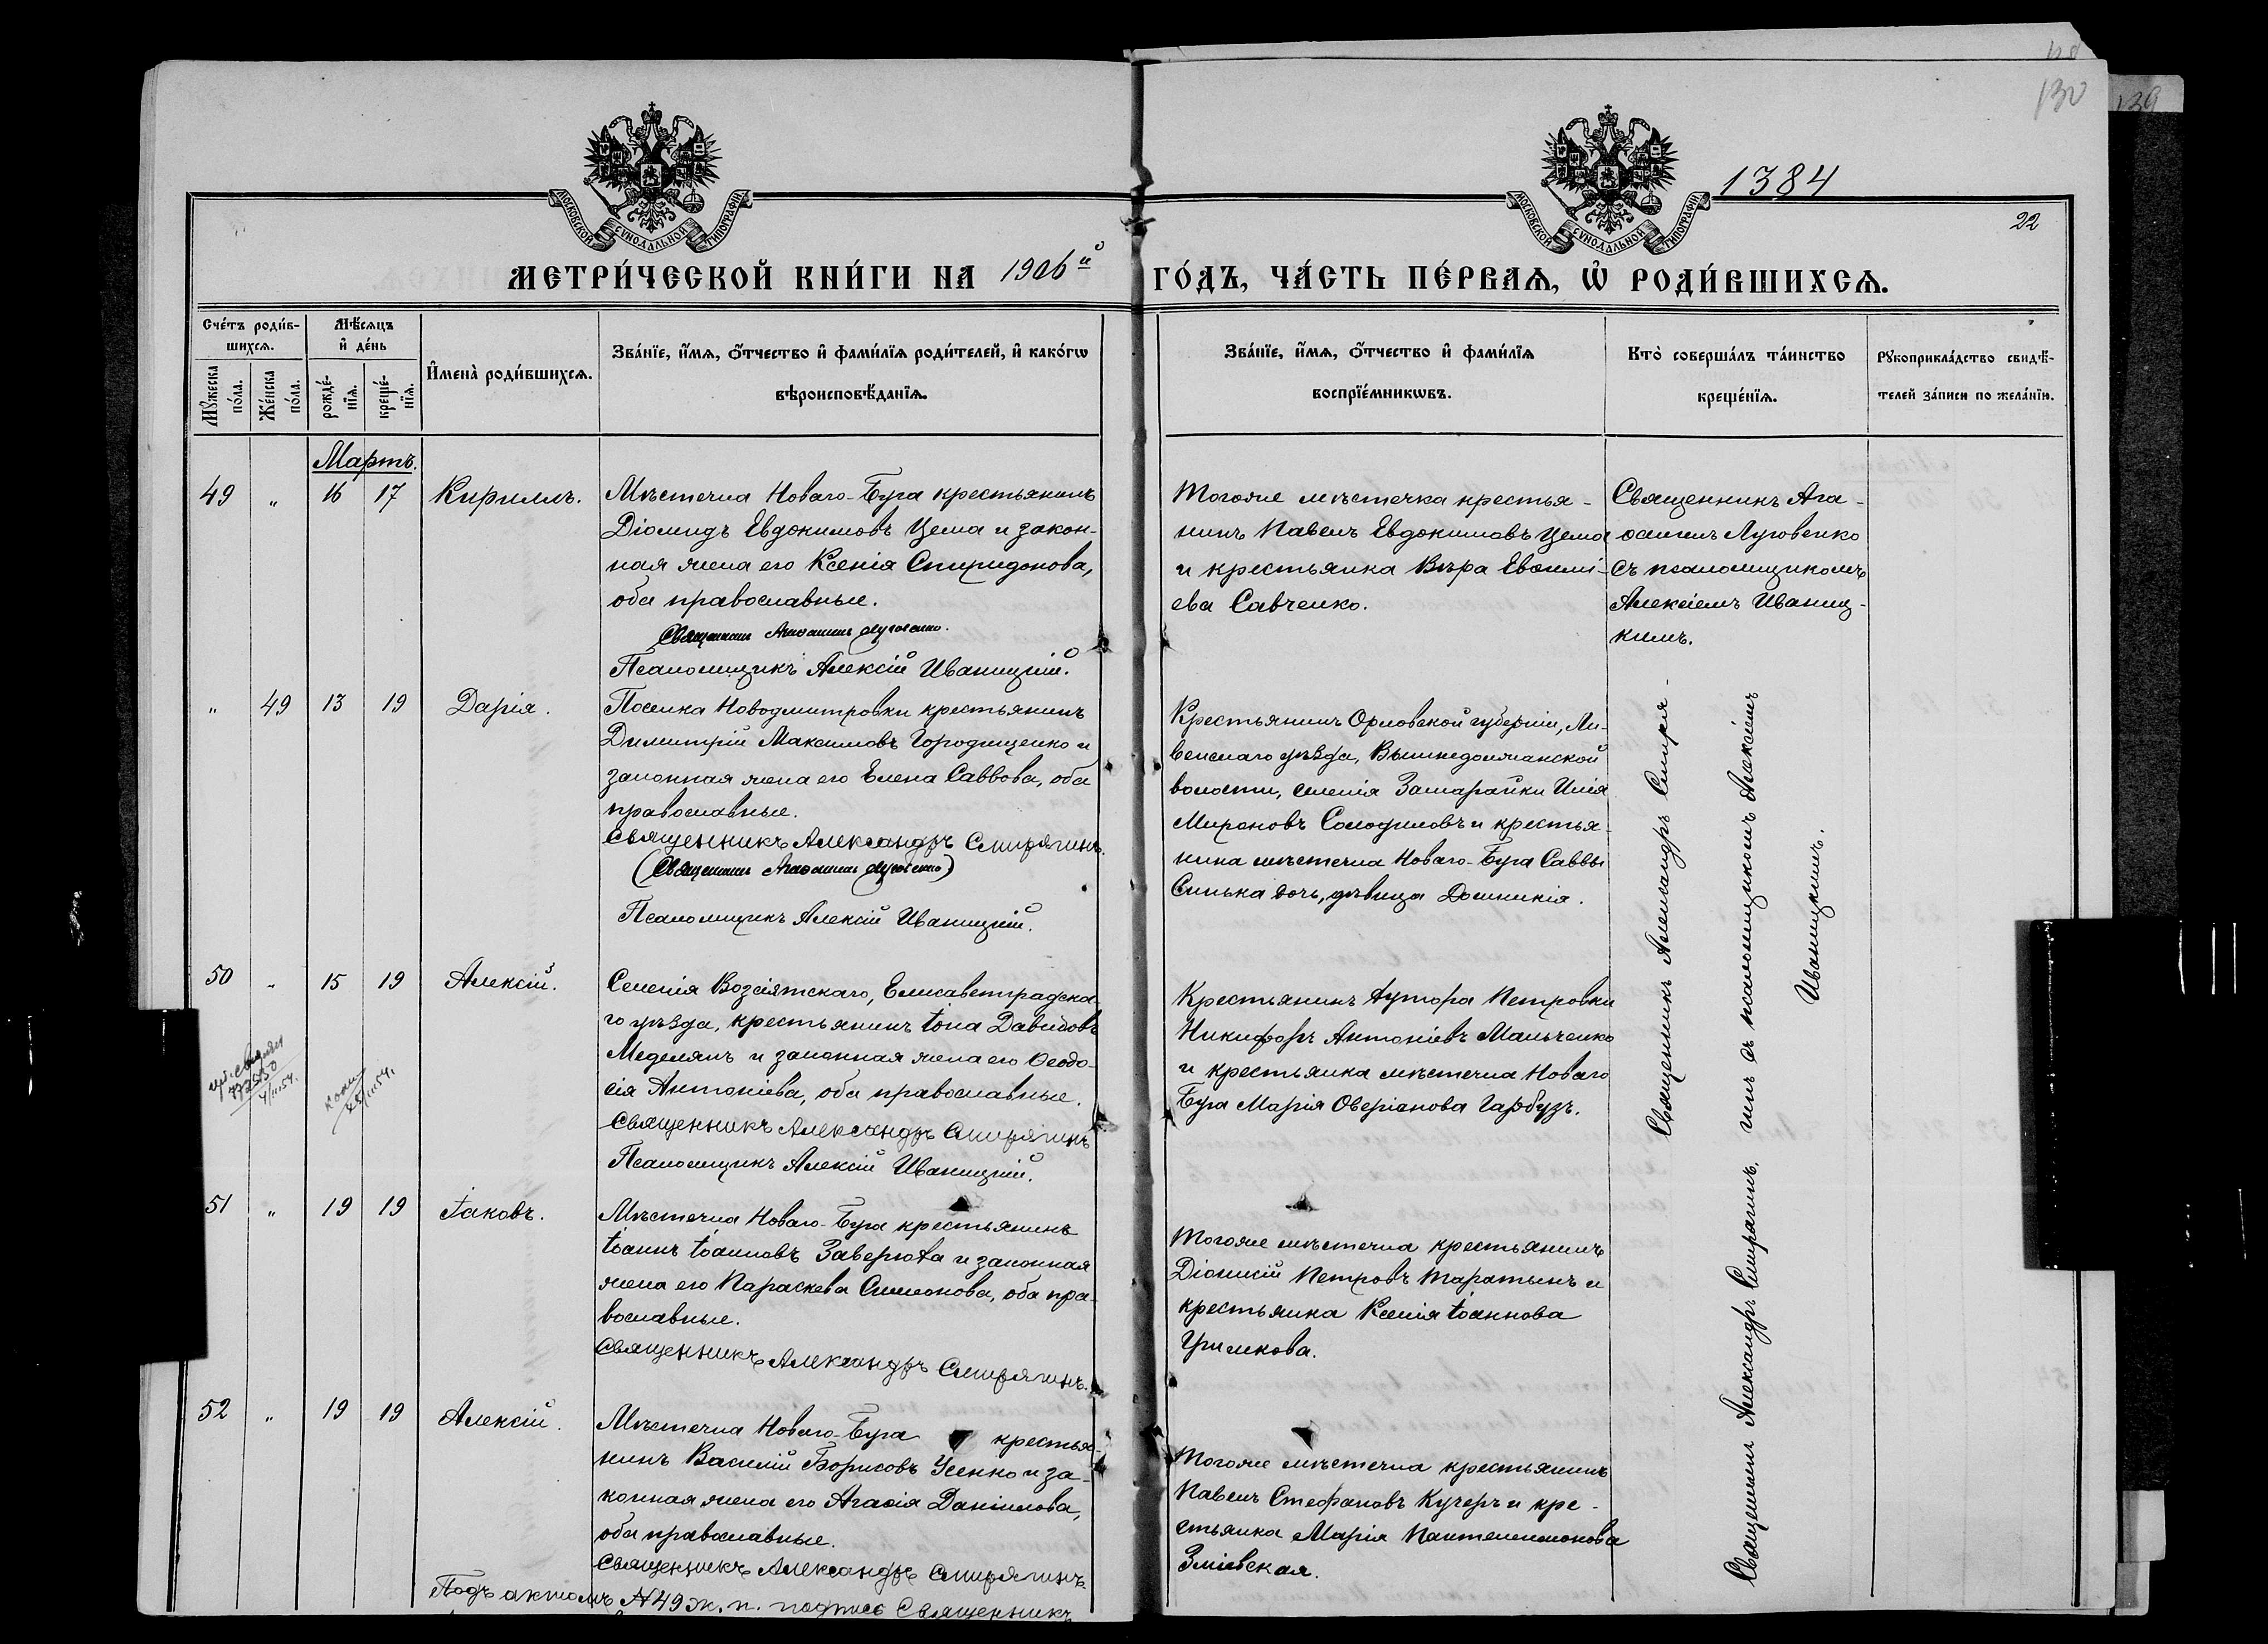 130
139
1384
22
МОСКОВСКОЙ СѴНОДАЛЬНОЙ ТИПОГРАФІИ
МОСКОВСКОЙ СѴНОДАЛЬНОЙ ТИПОГРАФІИ
МЕТРИ́ЧЕСКОЙ КНИ́ГИ НА 1906й ГО́ДЪ, ЧА́СТЬ ПЕ́РВАЯ, Ѡ҆ РОДИ́ВШИХСѦ.
Сче́тъ роди́в-
шихсѧ.
Мꙋ́жеска по́ла.
Же́нска по́ла.
Мѣ́сѧцъ
и҆ де́нь
рожде́-
нїѧ.
креще́-
нїѧ.
И҆мена̀ роди́вшихсѧ.
Зва́нїе, и҆́мѧ, ѻ҆́тчество и҆ фами́лїѧ роди́телей, и҆ како́гѡ
вѣроисповѣ́данїѧ.
Зва́нїе, и҆́мѧ, ѻ҆́тчество и҆ фами́лїѧ
воспрїе́мникѡвъ.
Кто̀ соверша́лъ та́инство
креще́нїѧ.
Рꙋкоприкла́дство свидѣ́-
телей за́писи по жела́нїю.
Мартъ.
49 " 16 17 Кириллъ.
Мѣстечка Новаго-Буга крестьянинъ
Діомидъ Евдокимовъ Цема и закон-
ная жена его Ксенія Спиридонова,
оба православные.
Священникъ Агаѳангелъ Луговенко.
Псаломщикъ Алексій Иваницкій.
Тогоже мѣстечка крестья-
нинъ Павелъ Евдокимовъ Цема
и крестьянка Вѣра Евѳимі-
ева Савченко.
Священникъ Ага-
ѳангелъ Луговенко
съ псаломщикомъ
Алексіемъ Иваниц-
кимъ.
" 49 13 19 Дарія.
Поселка Новодмитровки крестьянинъ
Димитрій Максимовъ Городищенко и
законная жена его Елена Саввова, оба
православные.
Священникъ Александръ Смирягинъ.
(Священникъ Агаѳангелъ Луговенко)
Псаломщикъ Алексій Иваницкій.
Крестьянинъ Орловской губерніи, Ли-
венскаго уѣзда, Вышнедолжанской
волости, селенія Замарайки Илія
Мироновъ Солодиловъ и крестья-
нина мѣстечка Новаго-Буга Саввы
Синька дочь, дѣвица Домникія.
50 " 15 19 Алексій.
Селенія Возсіятскаго, Елисаветградска-
го уѣзда, крестьянинъ Іона Давидовъ
Меделянъ и законная жена его Ѳеодо-
сія Антоніева, оба православные.
Священникъ Александръ Смирягинъ
Псаломщикъ Алексій Иваницкій.
Крестьянинъ Хутора Петровки
Никифоръ Антоніевъ Мальченко
и крестьянка мѣстечка Новаго
Буга Марія Оверіанова Гарбузъ.
Священникъ Александръ Смиря-
гинъ съ псаломщикомъ Алексіемъ
Иваницкимъ.
51 " 19 19 Іаковъ.
Мѣстечка Новаго-Буга крестьянинъ
Іоаннъ Іоанновъ Заверюха и законная
жена его Параскева Симеонова, оба пра-
вославные.
Священникъ Александръ Смирягинъ.
Тогоже мѣстечка крестьянинъ
Діонисій Петровъ Таратынъ и
крестьянка Ксенія Іоаннова
Гришкова.
52 " 19 19 Алексій.
Мѣстечка Новаго-Буга крестья-
нинъ Василій Борисовъ Усенко и за-
конная жена его Агаѳія Даніилова,
оба православные.
Священникъ Александръ Смирягинъ.
Тогоже мѣстечка крестьянинъ
Павелъ Стефановъ Кучеръ и кре-
стьянка Марія Пантелеимонова
Зміевская.
Священникъ Александръ Смирягинъ.
Подъ актомъ N49 ж. п. подпись Священникъ